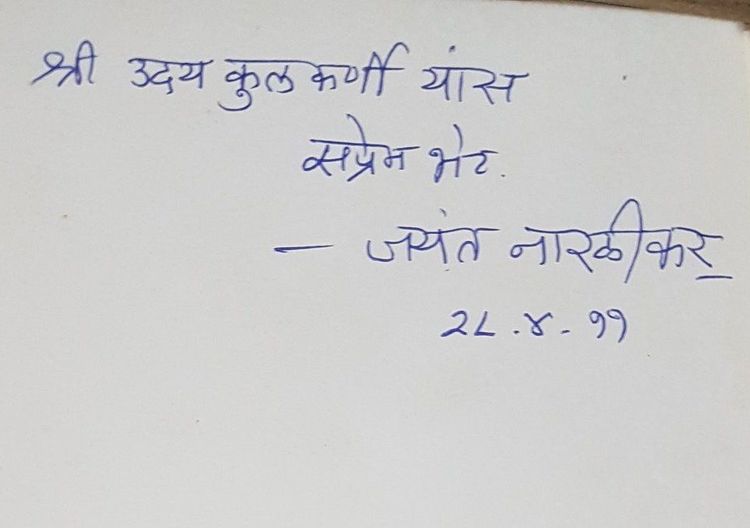 श्री उदय कुलकर्णी यांस
सप्रेम भेट.
— जयंत नारळीकर
२८.४.११